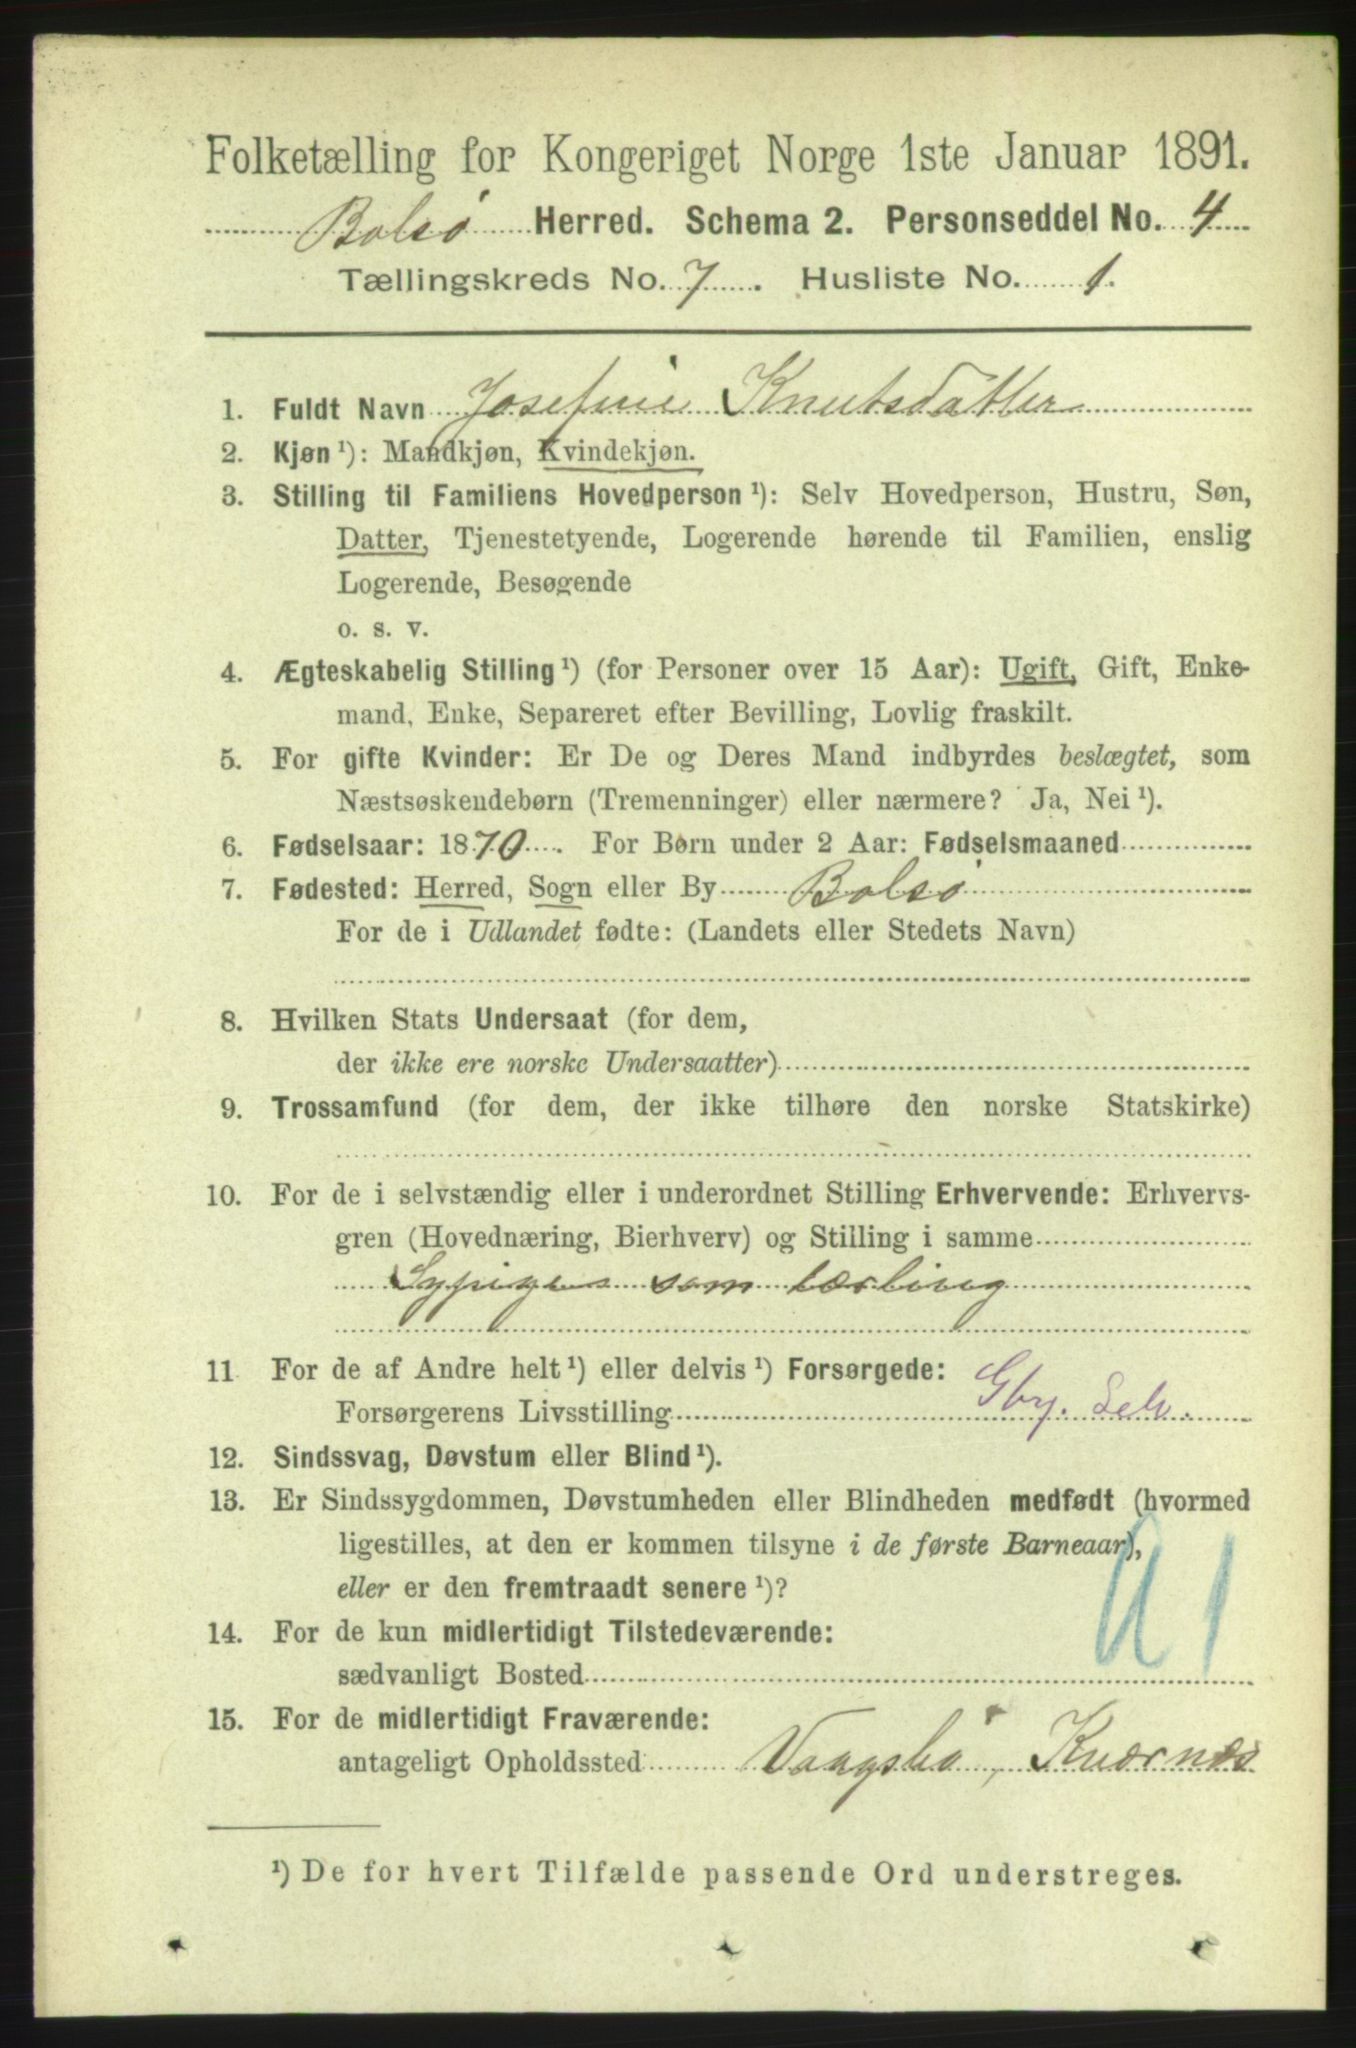 Folketælling for Kongeriget Norge 1ste Januar 1891.
Bolsø Herred. Schema 2. Personseddel No. 4
Tællingskreds No. 7. Husliste No. 1.
1. Fuldt Navn Josefine Knutsdatter
2. Kjøn ¹): Mandkjøn, Kvindekjøn.
3. Stilling til Familiens Hovedperson ¹): Selv Hovedperson, Hustru, Søn,
Datter, Tjenestetyende, Logerende hørende til Familien, enslig
Logerende, Besøgende
o. s. v.
4. Ægteskabelig Stilling ¹) (for Personer over 15 Aar): Ugift, Gift, Enke-
mand, Enke, Separeret efter Bevilling, Lovlig fraskilt.
5. For gifte Kvinder: Er De og Deres Mand indbyrdes beslægtet, som
Næstsøskendebørn (Tremenninger) eller nærmere? Ja, Nei ¹).
6. Fødselsaar: 1870. For Børn under 2 Aar: Fødselsmaaned
7. Fødested: Herred, Sogn eller By Bolsø
For de i Udlandet fødte: (Landets eller Stedets Navn)
8. Hvilken Stats Undersaat (for dem,
der ikke ere norske Undersaatter)
9. Trossamfund (for dem, der ikke tilhøre den norske Statskirke)
10. For de i selvstændig eller i underordnet Stilling Erhvervende: Erhvervs-
gren (Hovednæring, Bierhverv) og Stilling i samme
Sypige som lærling
11 For de af Andre helt ¹) eller delvis ¹) Forsørgede:
Forsørgerens Livsstilling Gbr. Selv.
12. Sindssvag, Døvstum eller Blind ¹).
13. Er Sindssygdommen, Døvstumheden eller Blindheden medfødt (hvormed
ligestilles, at den er kommen tilsyne i de første Barneaar),
eller er den fremtraadt senere ¹)?
14. For de kun midlertidigt Tilstedeværende:
sædvanligt Bosted
15. For de midlertidigt Fraværende:
antageligt Opholdssted Vaagsbø, Knærnæs
¹) De for hvert Tilfælde passende Ord understreges.